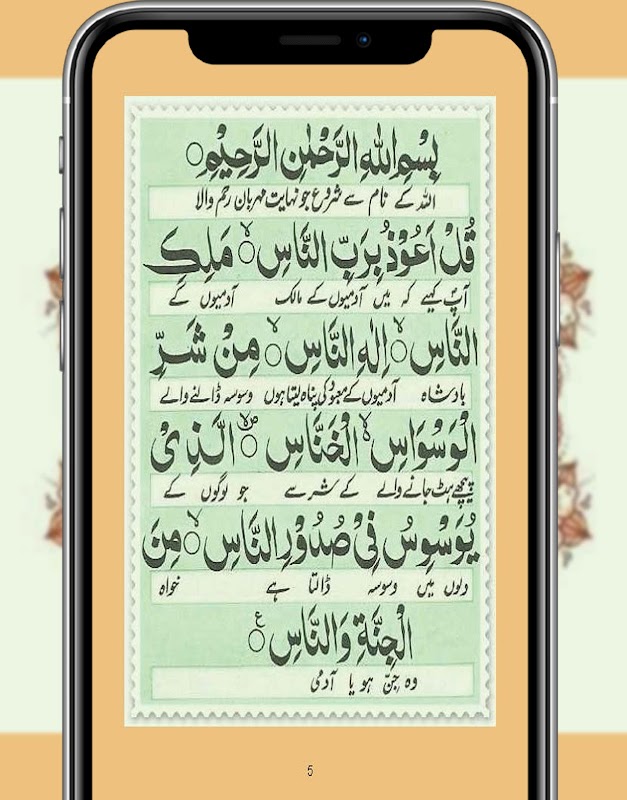 بِسْمِ اللهِ الرَّحْمٰنِ الرَّحِيْمِ ○
اللہ کے نام سے شروع جو نہایت مہربان رحم والا
قُلْ اَعُوْذُ بِرَبِّ النَّاسِ ○ۙ مَلِكِ
آپ کہیے کہ میں آدمیوں کے مالک آدمیوں کے
النَّاسِ ○ۙ اِلٰهِ النَّاسِ ○ۙ مِنْ شَرِّ
بادشاہ آدمیوں کے معبود کی پناہ لیتا ہوں وسوسہ ڈالنے والے
الْوَسْوَاسِ ۙ الْخَنَّاسِ ○ۙ الَّذِيْ
پیچھے ہٹ جانے والے کے شر سے جو لوگوں کے
يُوَسْوِسُ فِيْ صُدُوْرِ النَّاسِ ○ۙ مِنَ
دلوں میں وسوسہ ڈالتا ہے خواہ
الْجِنَّةِ وَالنَّاسِ ○ ع
وہ جِنّ ہو یا آدمی
5